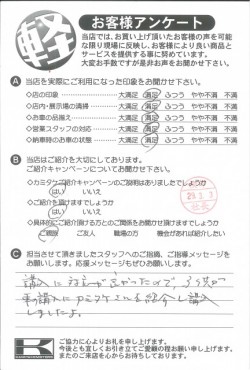 軽
お客様アンケート
当店では、お買い上げ頂いたお客様の声を可能
な限り現場に反映し、お客様により良い商品と
サービスを提供する事に努めています。
大変お手数ですが是非お声をお聞かせ下さい。
A 当店を実際にご利用になった印象をお聞かせ下さい。
◇店の印象 大満足 満足 ふつう やや不満 不満
◇店内・展示場の清掃 大満足 満足 ふつう やや不満 不満
◇お車の品揃え 大満足 満足 ふつう やや不満 不満
◇営業スタッフの対応 大満足 満足 ふつう やや不満 不満
◇納車時のお車の状態 大満足 満足 ふつう やや不満 不満
B 当店はご紹介を大切にしております。
ご紹介キャンペーンについてお聞かせ下さい。
◇カミタケご紹介キャンペーンのご説明はありましたでしょうか
はい いいえ
◇ご紹介を頂けますでしょうか
はい いいえ
◇具体的にご紹介頂ける方とのご関係をお聞かせ頂けますでしょうか
ご親戚 ご友人 職場の方 機会があれば紹介したい
C 担当させて頂きましたスタッフへのご指摘、ご指導メッセージを
お願いします。応援メッセージもぜひお願いします。
しました。
K
ご協力に心よりお礼を申し上げます。
今後とも宜しくお引き立てのご愛顧の程お願い申し上げます。
またのご来店を心からお待ちしております。